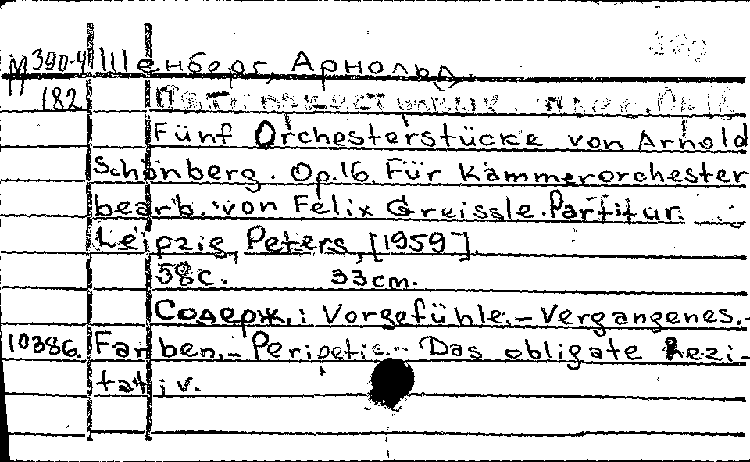 М 390-4 Шенберг, Арнольд.
182 Пять оркестровых пьес. Op. 16
Fünf Orchesterstücke von Arnold
Schönberg. Op. 16. Für Kammerorchester
bearb. von Felix Greissle. Partitur.
Leipzig, Peters, [1959].
58 с. 33 cm.
Содерж.: Vorgefühle. – Vergangenes. –
10386. Farben. – Peripetie. – Das obligate Rezi-
tativ.